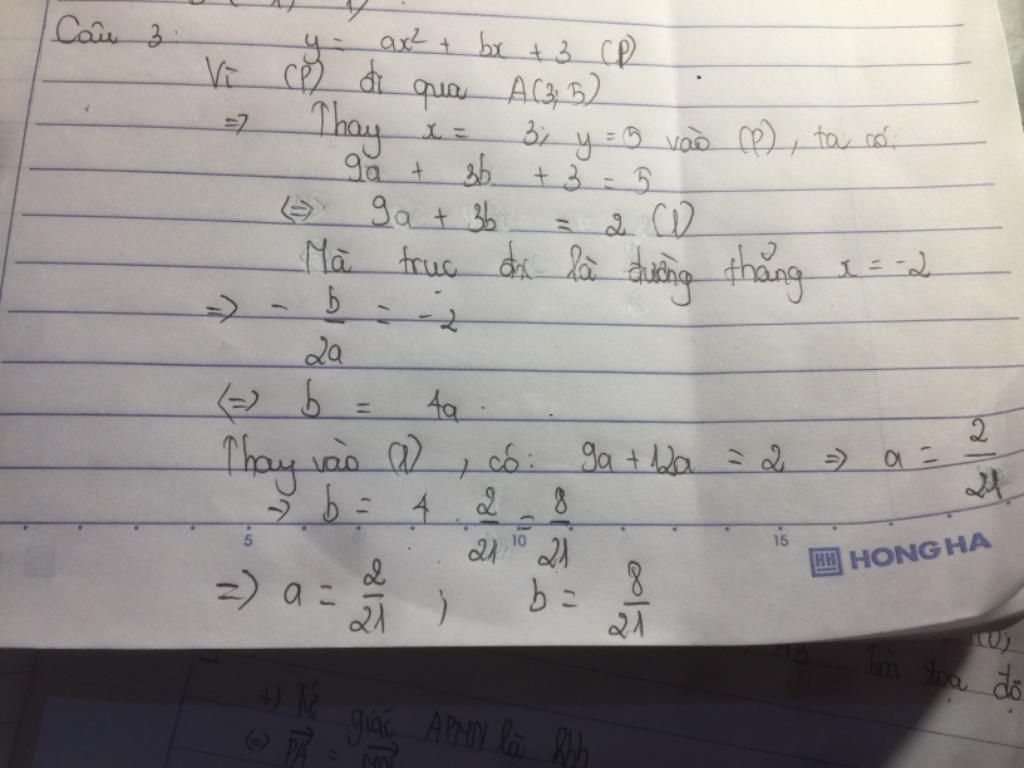 Câu 3: y = ax² + bx + 3 (P)
Vì (P) đi qua A(3; 5)
=> Thay x = 3; y = 5 vào (P), ta có:
9a + 3b + 3 = 5
<=> 9a + 3b = 2 (1)
Mà trục đx là đường thẳng x = -2
=> - b/2a = -2
<=> b = 4a.
Thay vào (1), có: 9a + 12a = 2 => a = 2/21
=> b = 4 . 2/21 = 8/21
5 10 15
HH HONG HA
=> a = 2/21 ; b = 8/21
AB Tìm tọa độ
+) Tứ giác APMN là hbh
<=> PA =